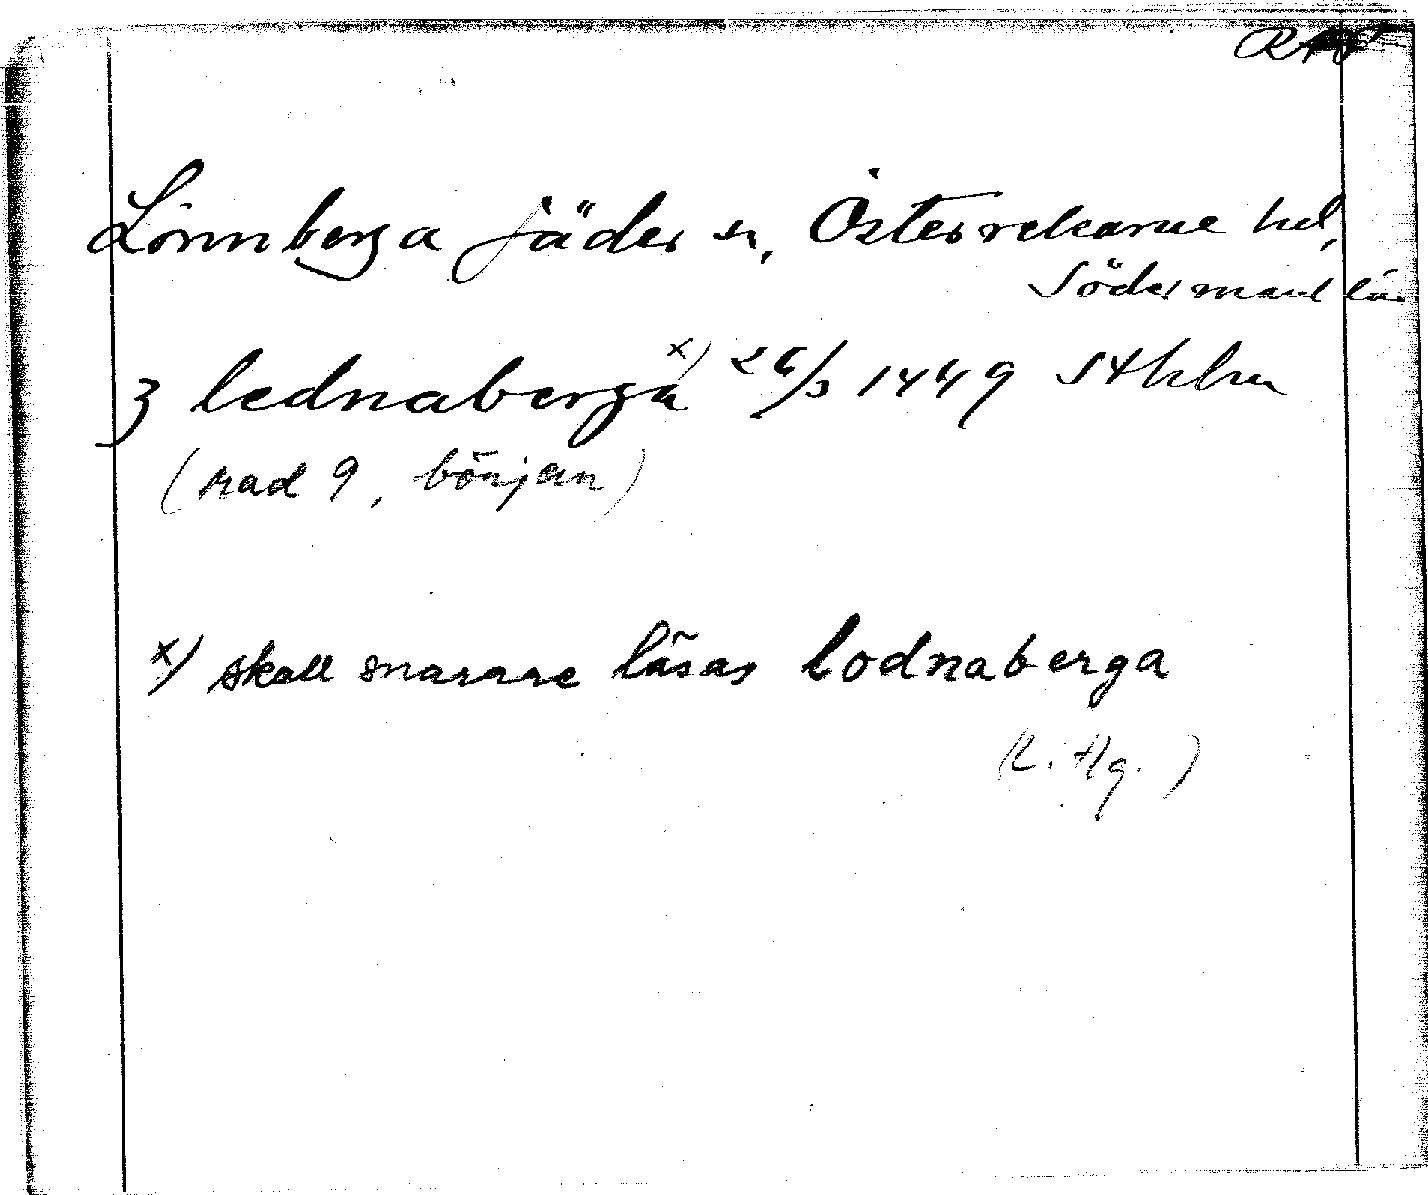 RAP
Lönnberga Jäder sn, Österrekarne hd,
Södermanl län
3 lednaberga x) 26/3 1449 Sthlm
(rad 9, början)
x) skall snarare läsas lodnaberga
(L. Hg.)